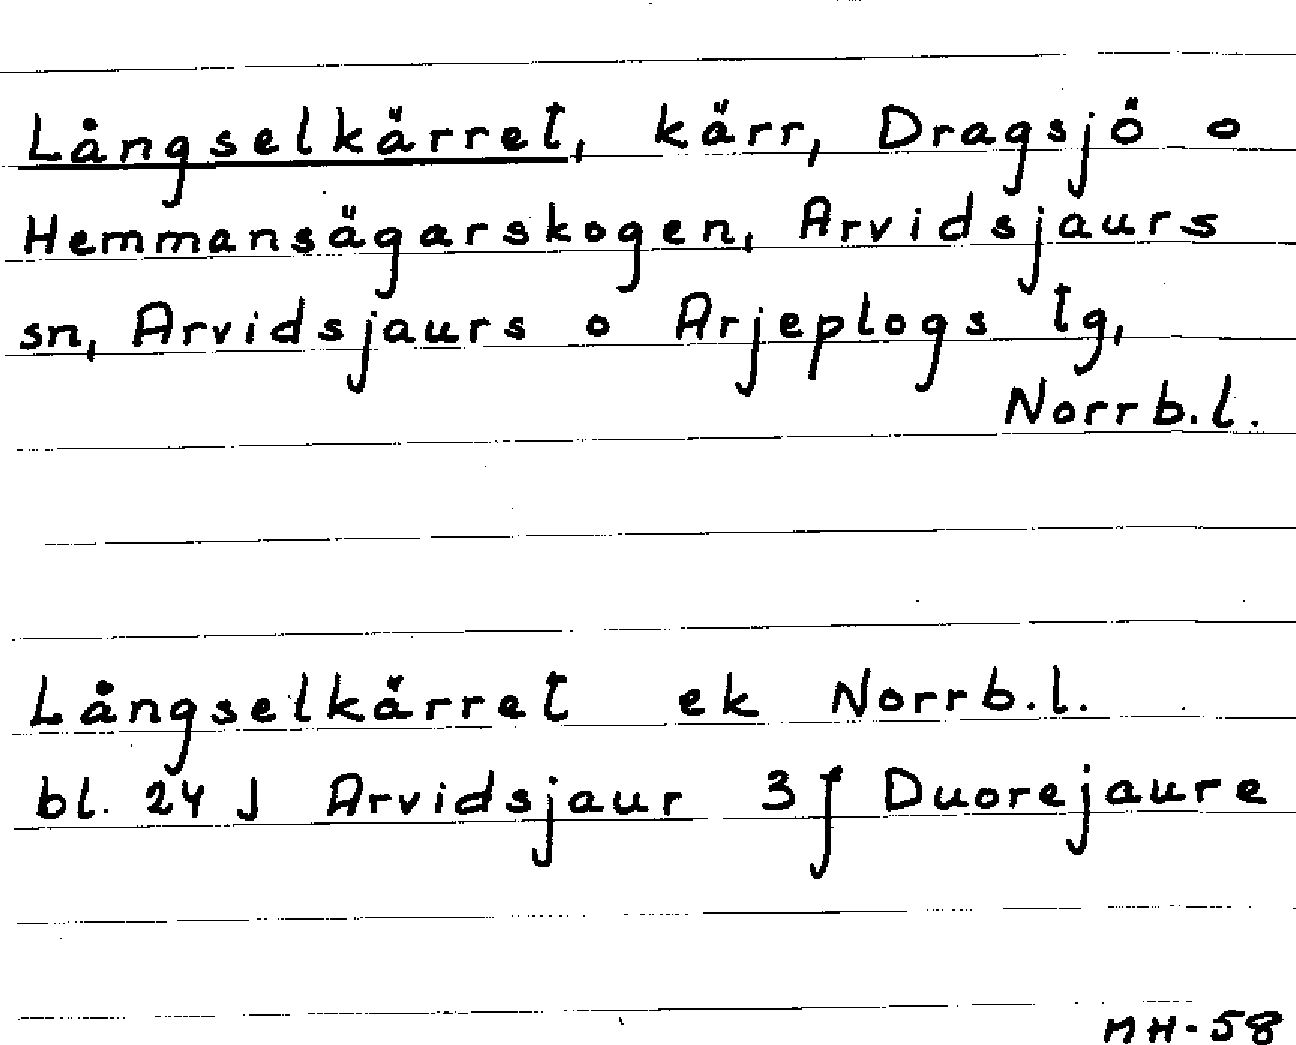 Långselkärret, kärr, Dragsjö o
Hemmansägarskogen, Arvidsjaurs
sn, Arvidsjaurs o Arjeplogs tg,
Norrb.l.
Långselkärret ek Norrb.l.
bl. 24 J Arvidsjaur 3 f Duorejaure
MH-58